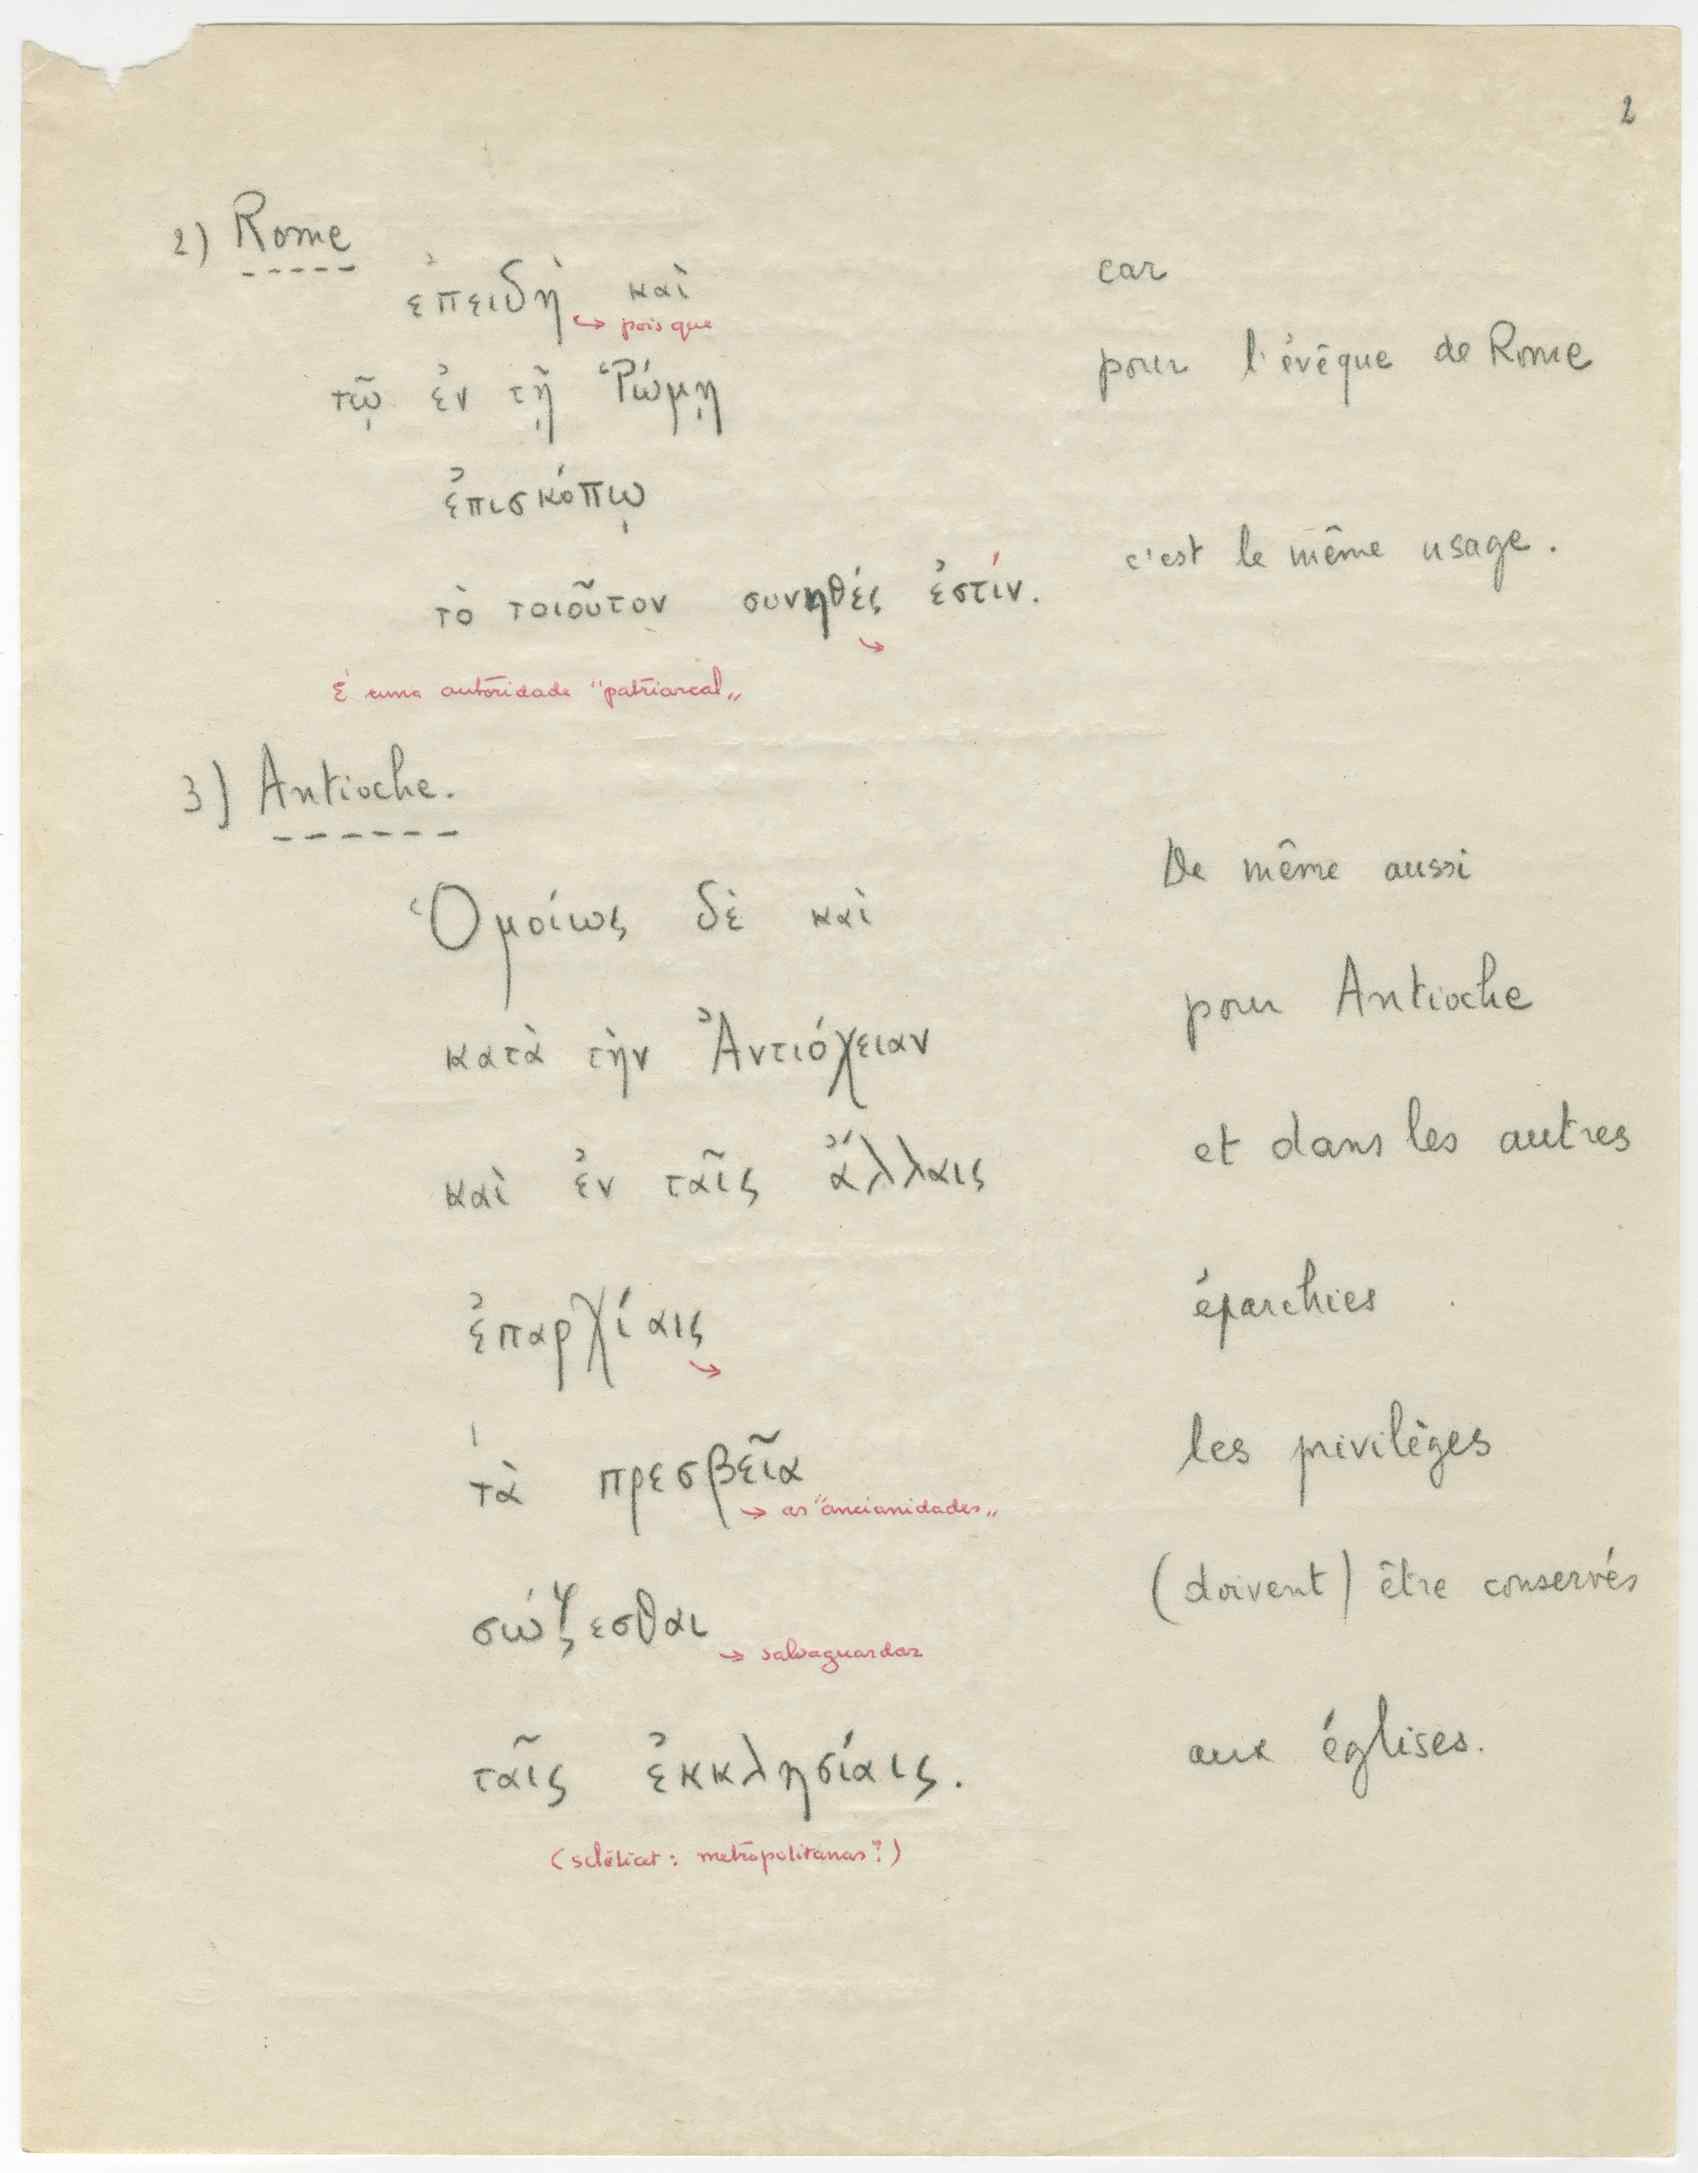 2
2) Rome
ἐπειδὴ καὶ car
↪ pois que
τῷ ἐν τῇ Ῥώμῃ pour l'évêque de Rome
ἐπισκόπῳ
τὸ τοιοῦτον συνηθές ἐστίν. c'est le même usage.
É uma autoridade "patriarcal"
3) Antioche.
Ὁμοίως δὲ καὶ De même aussi
κατὰ τὴν Ἀντιόχειαν pour Antioche
καὶ ἐν ταῖς ἄλλαις et dans les autres
ἐπαρχίαις éparchies
τὰ πρεσβεῖα les privilèges
→ as "ancianidades"
σώζεσθαι (doivent) être conservés
→ salvaguardar
ταῖς ἐκκλησίαις. aux églises.
(scilicet: metropolitanas?)